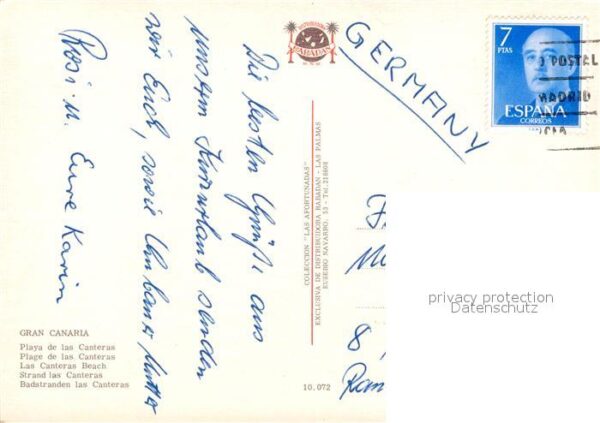 DISTRIBUIDORA
RABADAN
GERMANY
7
PTAS
ESPAÑA
CORREOS
POSTAL
MADRID
Die besten Grüße aus
unserem Kurzurlaub senden
wir Euch, sowie
Mutter
Rosi u. Eure Karin
COLECCION "LAS AFORTUNADAS"
EXCLUSIVA DE DISTRIBUIDORA RABADAN - LAS PALMAS
EUSEBIO NAVARRO, 53 - Tel. 218608
8
GRAN CANARIA
Playa de las Canteras
Plage de las Canteras
Las Canteras Beach
Strand las Canteras
Badstranden las Canteras
10.072
privacy protection
Datenschutz